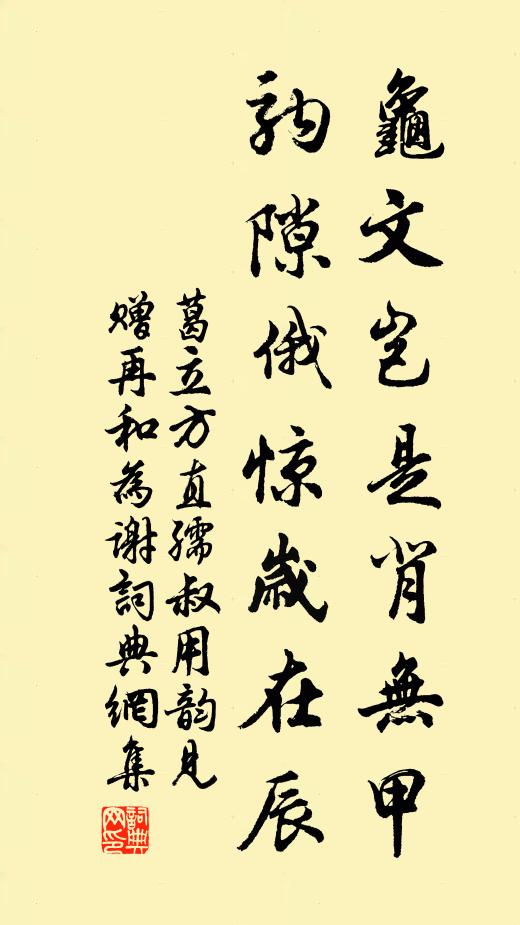 龜文岂是背無甲
駒隙俄惊歲在辰
葛立方直孺叔用韵見
贈再和為謝詞典網集
詞典網印